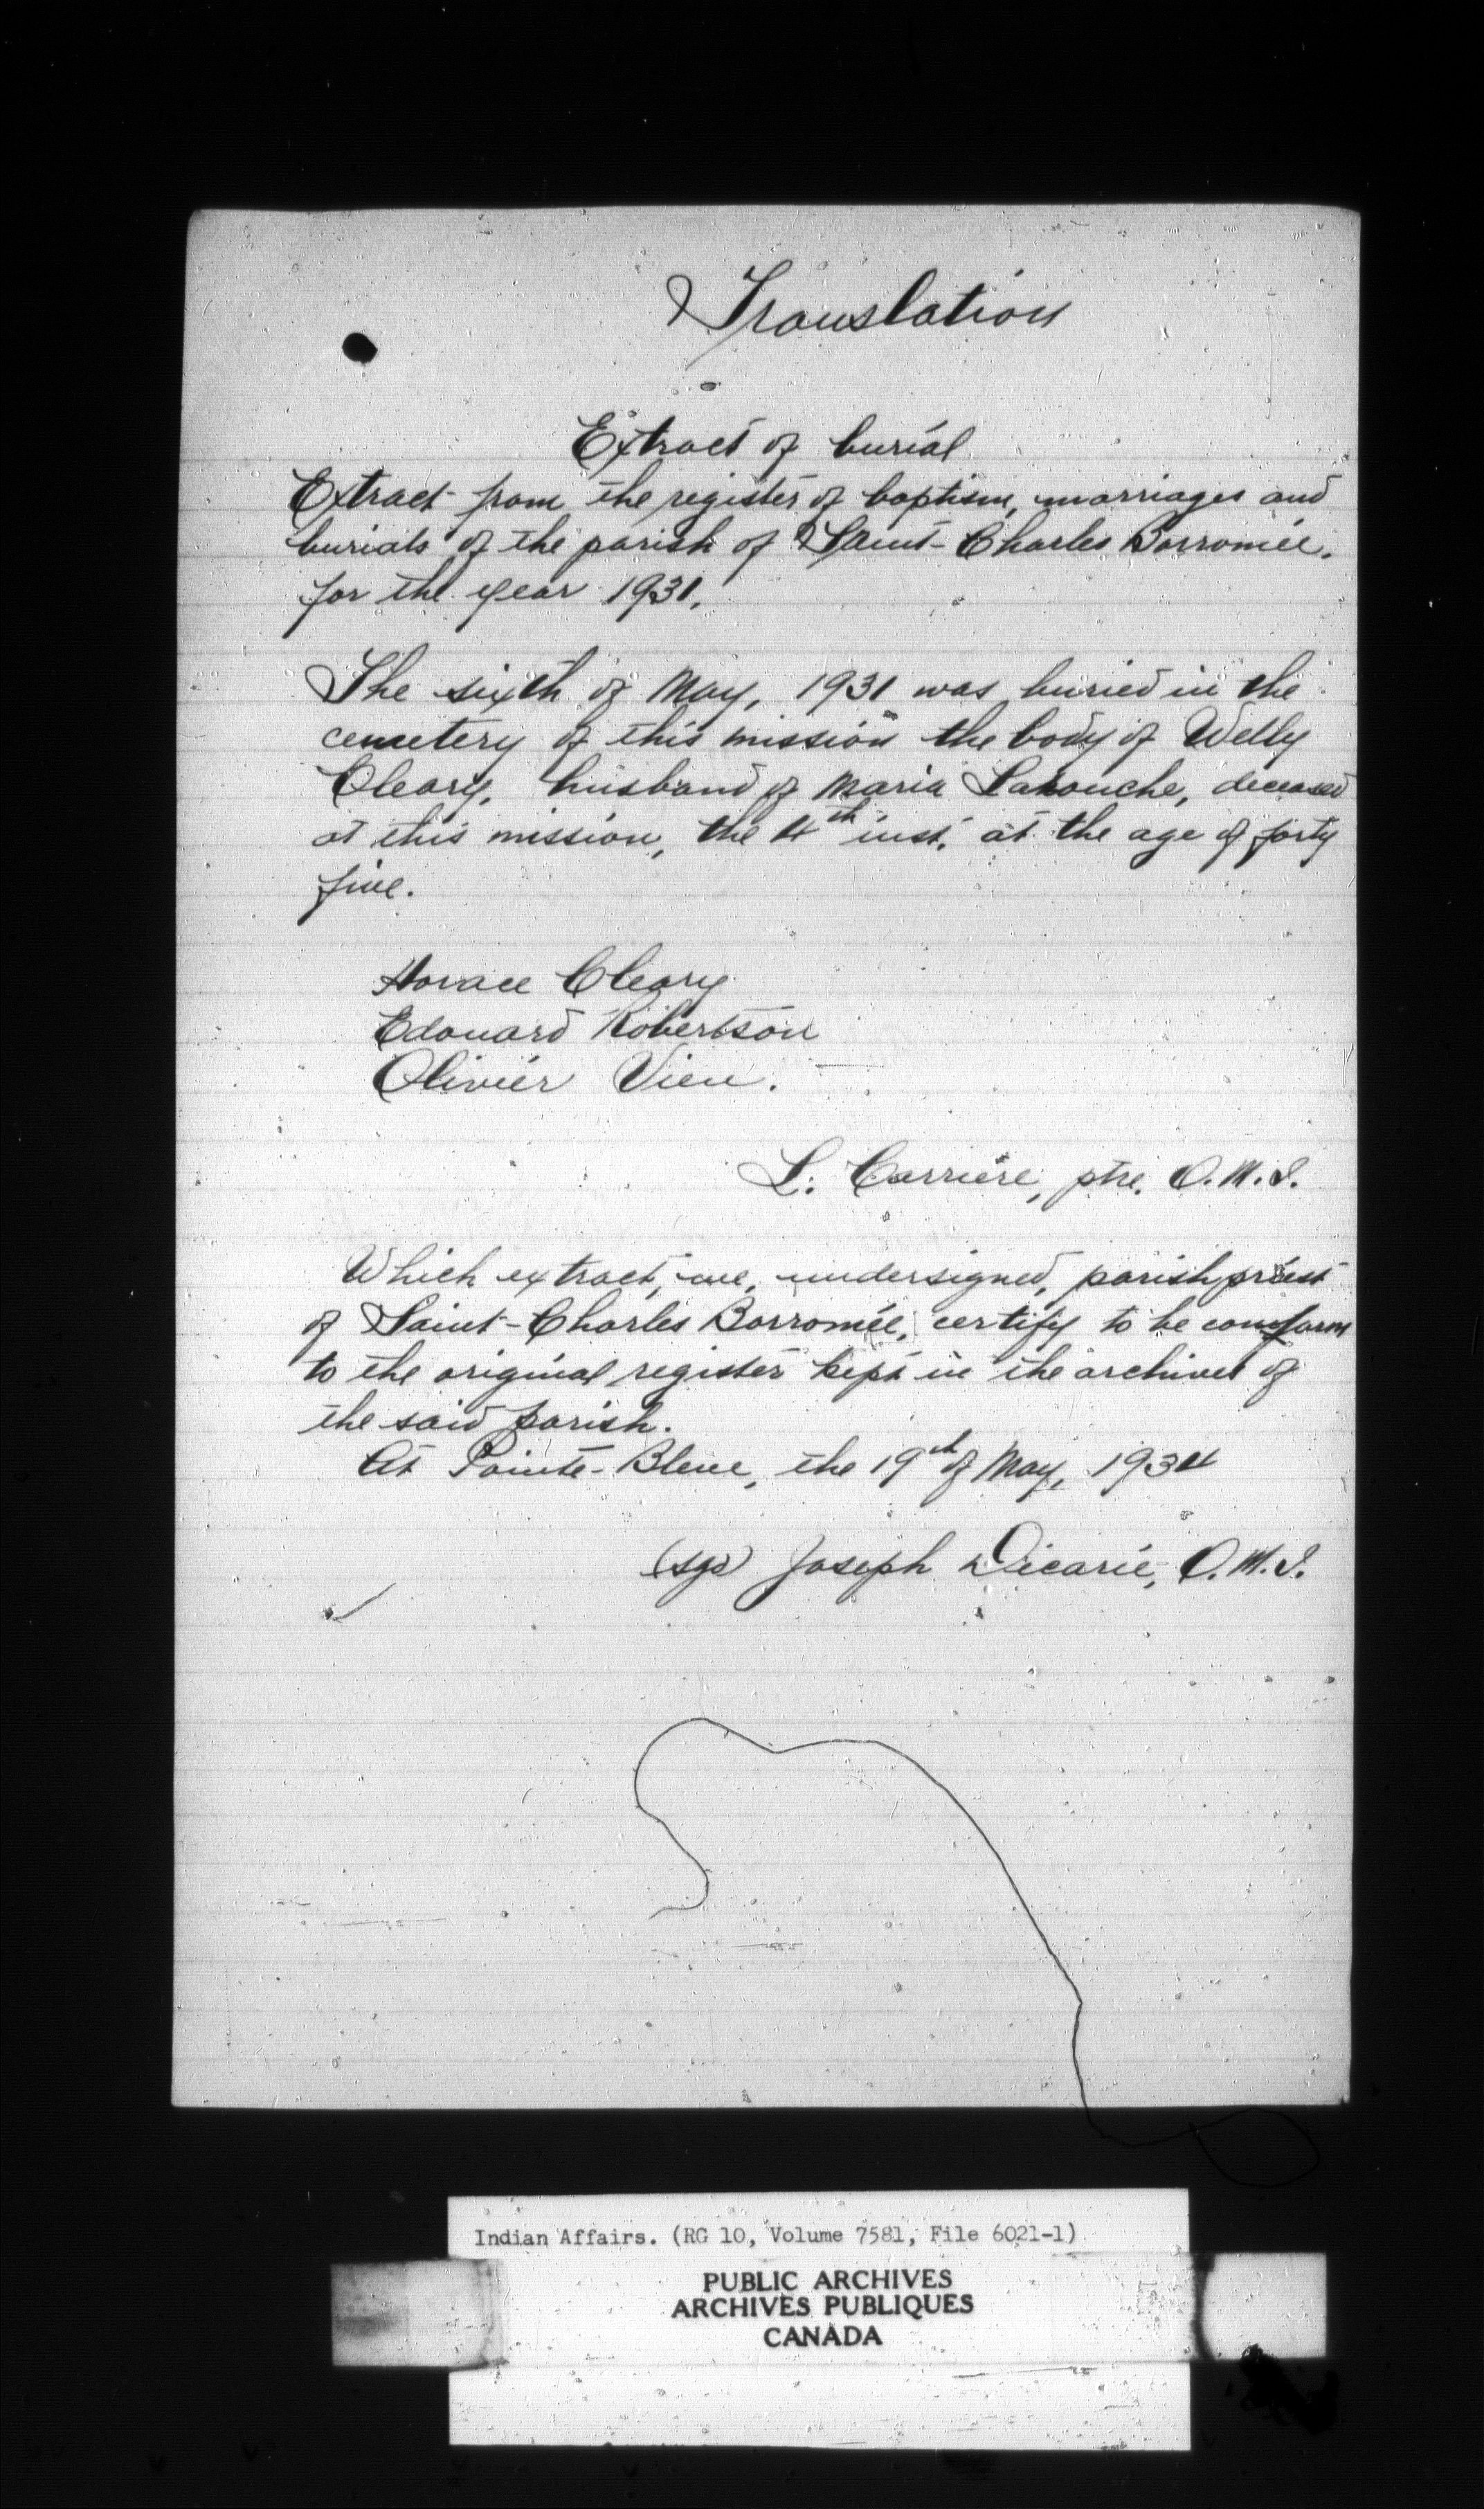 Translation
Extract of burial
Extract from the register of baptism, marriages and
burials of the parish of Saint-Charles Borromée.
for the year 1931.
The sixth of May, 1931 was buried in the
cemetery of this mission the body of Welly
Cleary, husband of Maria Larouche, deceased
at this mission, the 4th inst. at the age of forty
five.
Horace Cleary
Edouard Robertson
Olivier Vien.
L. Carrière, ptre. O.M.I.
Which extract, we, undersigned, parish priest
of Saint-Charles Borromée, certify to be conform
to the original register kept in the archives of
the said parish.
At Pointe-Bleue, the 19th of May, 1934
(sgd) Joseph Dicarie, O.M.I.
Indian Affairs. (RG 10, Volume 7581, File 6021-1)
PUBLIC ARCHIVES
ARCHIVES PUBLIQUES
CANADA